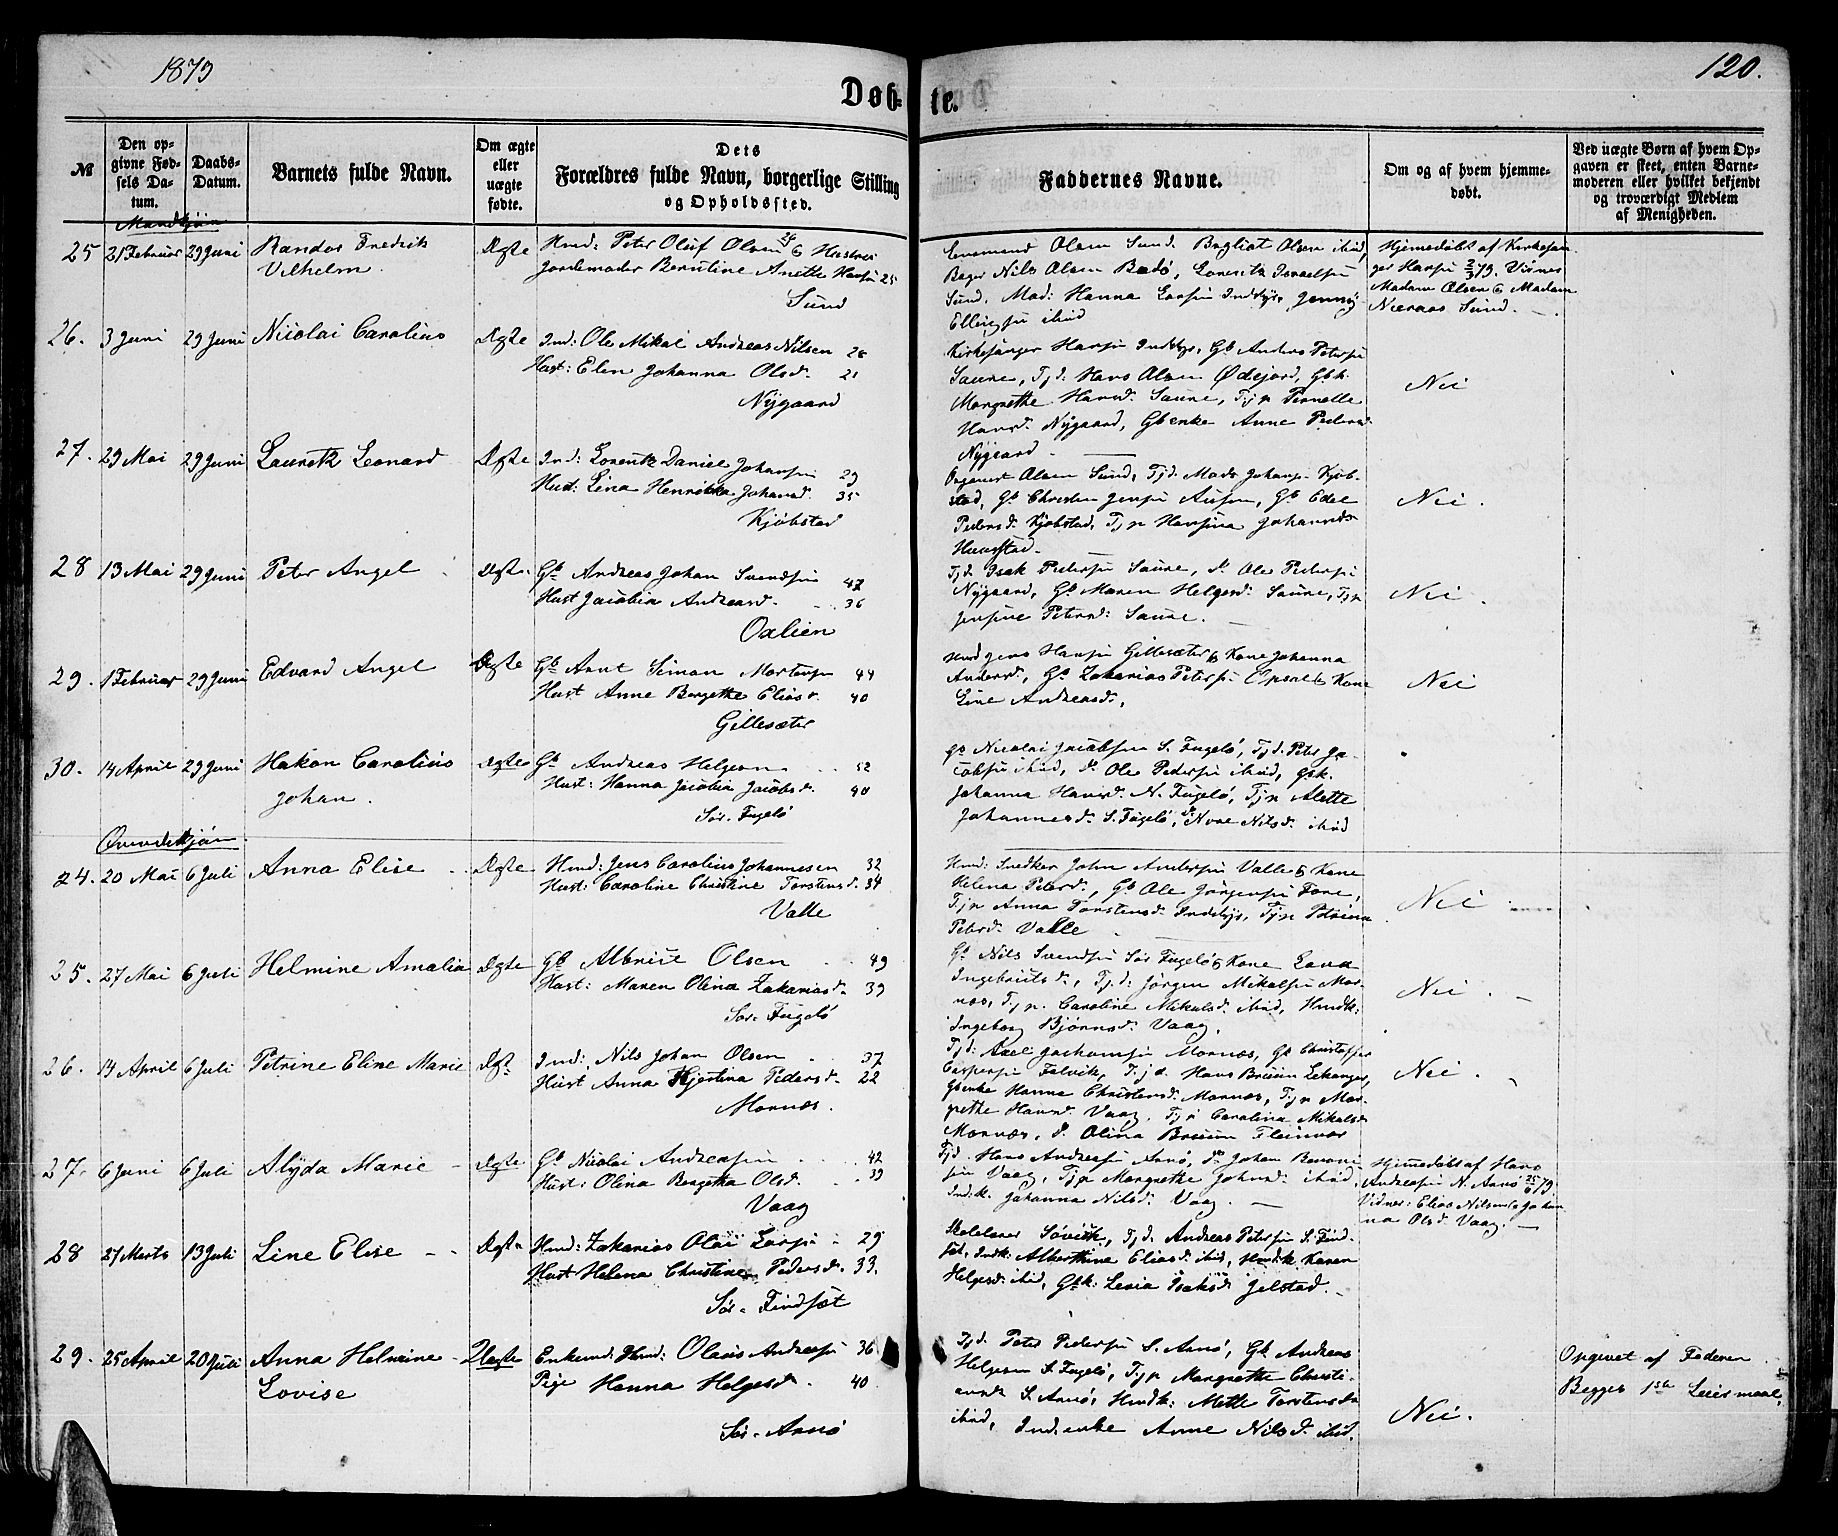 1879
120.
Døb-
te.
№
Den op-
givne Fød-
sels Da-
tum.
Daabs-
Datum.
Barnets fulde Navn.
Om ægte
eller
uægte
fødte.
Dets
Forældres fulde Navn, borgerlige Stilling
og Opholdssted.
Faddernes Navne.
Om og af hvem hjemme-
døbt.
Ved uægte Børn af hvem Op-
gaven er skeet, enten Barne-
moderen eller hvilket bekjendt
og troværdigt Medlem
af Menigheden.
Mandkjön
25 21 Februar 29 Juni Randor Fredrik
Vilhelm.
Ægte
Hmd: Peter Oluf Olsen 24 & Hustru
Jordemoder Berntine Anette Hansen 25
Sund
Evenmand Olsen Sund. Olsen ibid,
Bager Nils Olsen Bodö, Lorentz Israelsen
Sund. Mad: Hanna Larsen Indbyr, Jenny
Ellingsen ibid
Hjemedöbt af Kirkesan-
ger Hansen 2/3 79. Vidner
Madam Olsen & Madam
Sund.
26. 3 Juni 29 Juni Nicolai Carolius
Ægte
Ind: Ole Mikal Andreas Nilsen 28
Hust: Elen Johanna Olsd. 21
Nygaard
Kirkesanger Hansen Indbyr, Gb Anders Petersen
Saure, Tjd. Hans Olsen Ødejord, Gbk.
Margrethe Hansd. Saure, Tjp Pernelle
Hansd. Nygaard, Gbenke Anne Pedersd.
Nygaard
Nei
27. 29 Mai 29 Juni Lauretz Leonard
Ægte
Ind: Lorentz Daniel Johansen 29
Hust: Lina Henrikka Johansd. 35
Kjöbstad
Olsen Sund, Tjd: Mads Johansen Kjöb-
stad, Gb Christen Jensen, Gb Edel
Pedersd. Kjöbstad, Tjp Hansina Johannesd.
Nei.
28 13 Mai 29 Juni Peter Angel
Ægte
Gb. Andreas Johan Svendsen 47
Hust Jacobia Andreasd. 36
Oalien
Tjd. Isak Pedersen Saure, d. Ole Pedersen
Nygaard, Gb Maren Helgesd. Saure, Tjp
Jensine Petersd. Saure.
Nei.
29. 1 Februar 29 Juni Edvard Angel
Ægte
Gb Arnt Simon Mortensen 44
Hust Anne Bergette Eliasd. 40
Gillesæter
Hmd Jens Hansen Gillesæter & Kone Johanna
Andersd., Gb. Zakarias Petersen & Kone
Line Andreasd.
Nei
30. 14 April 29 Juni Hakon Carolius
Johan.
Ægte
Gb. Andreas Helgesen 52
Hust: Hanna Jacobia Jacobsd. 40
Sör-Fugelö
Gb Nicolai Jacobsen S. Fugelö, Tjd. Peter Ja-
cobsen ibid, d. Ole Pedersen ibid, Gbk.
Johanna Hansd. N. Fugelö, Tjp Alette
Johannesd. S. Fugelö, d. Nilsd. ibid
Qvindekjön
24. 20 Mai 6 Juli Anna Elise
Ægte
Hmd: Jens Carolius Johannesen 32
Hust: Caroline Christine Torstensd. 34
Valle
Hmd: Snedker John Andersen Valle & Kone
Helena Petersd., Gb Ole Jörgensen Fore,
Tjp Anna Torstensd. Indbyr, Tjp Petrina
Petersd. Valle
Nei
25. 27 Mai 6 Juli Helmine Amalia
Ægte
Gb. Albrigt Olsen 49
Hust: Maren Olina Zakariasd. 39
Sör-Fugelö
Gb Nils Svendsen Sör Fugelö & Kone Lava
Ingebrigtsd., Tjd: Jörgen Mikalsen Mor-
næs, Tjp. Caroline Mikalsd. ibid, Hmdk:
Ingeborg Björnsd. Vaag.
Nei.
26. 14 April 6 Juli Petrine Eline Marie
Ægt.
Ind: Nils Johan Olsen 37
Hust Anna Kjerstina Pedersd. 22
Mornæs.
Tjd: Axel Jochumsen Mornæs, Gb Christoffer
Caspersen Falvik, Tjd. Hans Bruun Lekanger,
Gbenke Hanna Christensd. Mornæs, Tjp Mar-
grethe Hansd. Vaag, Tjp Carolina Mikalsd.
Mornæs, d. Olina Bruun Fleinvær
Nei.
27. 6 Juni 6 Juli Alyda Marie
Ægte
Gb Nicolai Andreasen 42
Hust: Olina Bergetta Olsd. 39
Vaag
Tjd. Hans Andreasen Arnö, do Johan Benoni-
sen Vaag, Tjp Margrethe Johnsd. ibid,
Indk. Johanna Nilsd. Vaag.
Hjemedöbt af Hans
Andreasen N. Arnö 25/6 79
Vidner: Elias Nilsen & Johan-
na Olsd. Vaag.
28 27 Marts 13 Juli Line Elise
Ægte
Hmd: Zakarias Olai Larsen 29
Hust Helena Christine Pedersd. 33.
Sör-Findset
Skolelærer Sövik, Tjd. Andreas Petersen S. Find-
set, Indk: Alberthine Eliasd. ibid, Hmdk. Karen
Helgesd. ibid, Gbk: Lesia Isaksd. Jelstad.
29. 25 April 20 Juli Anna Helmine
Lovise
Uægte
Enkemd: Hmd: Olaus Andreasen 36
Pige Hanna Helgesd. 40
Sör-Arnö
Tjd. Peter Pedersen S. Arnö, Gb. Andreas
Helgesen S. Fugelö, Tjp Margrethe Christi-
ansd. S. Arnö, Hmdk: Mette Torstensd.
ibid, Ind. enke Anne Nilsd. ibid.
Nei.
Opgivet af Faderen.
Begges 1ste Leiermaal.